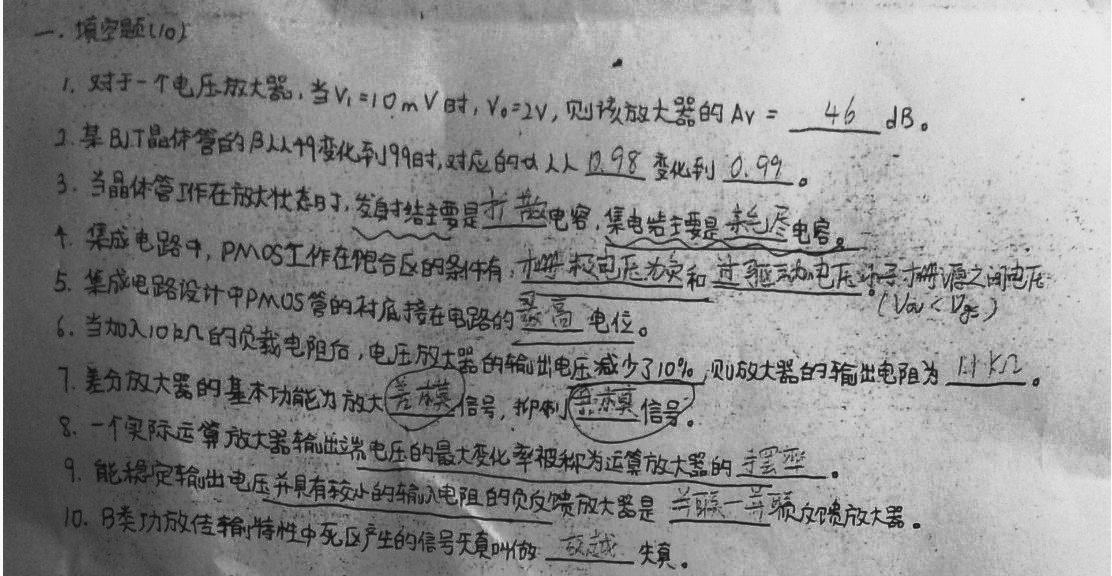 一. 填空题(10)
1. 对于一个电压放大器,当V₁=10mV时,V₀=2V,则该放大器的Av= 46 dB。
2. 某BJT晶体管的β从49变化到99时,对应的α从 0.98 变化到 0.99 。
3. 当晶体管工作在放大状态时,发射结主要是扩散电容,集电结主要是耗尽电容。
4. 集成电路中,PMOS工作在饱合区的条件有,栅极电压为负和过驱动电压 栅源之间电压
(Vov < Vgs)
5. 集成电路设计中PMOS管的衬底接在电路的最高电位。
6. 当加入10kΩ的负载电阻后,电压放大器的输出电压减少了10%,则放大器的输出电阻为 1.1KΩ 。
7. 差分放大器的基本功能为放大差模信号,抑制共模信号。
8. 一个实际运算放大器输出端电压的最大变化率被称为运算放大器的 摆率 。
9. 能稳定输出电压并具有较小的输入电阻的负反馈放大器是 并联-并联反馈放大器。
10. B类功放传输特性中死区产生的信号失真叫做 交越 失真。